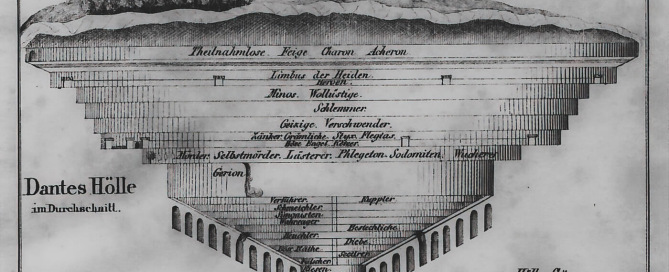 Theilnahmlose. Feige Charon Acheron
Limbus der Heiden.
Heroen
Minos. Wollüstige.
Schlemmer.
Geizige. Verschwender.
Zänker. Grämliche. Styx. Flegias.
Böse Engel. Ketzer.
Mörder. Selbstmörder. Lästerer. Phlegeton. Sodomiten. Wucherer
Gerion
Dantes Hölle
im Durchschnitt.
Verführer. Kuppler
Schmeichler.
Simonisten.
Wahrsager
Bestechliche
Heuchler.
Diebe.
Böse Räthe
Fälscher
Riesen.